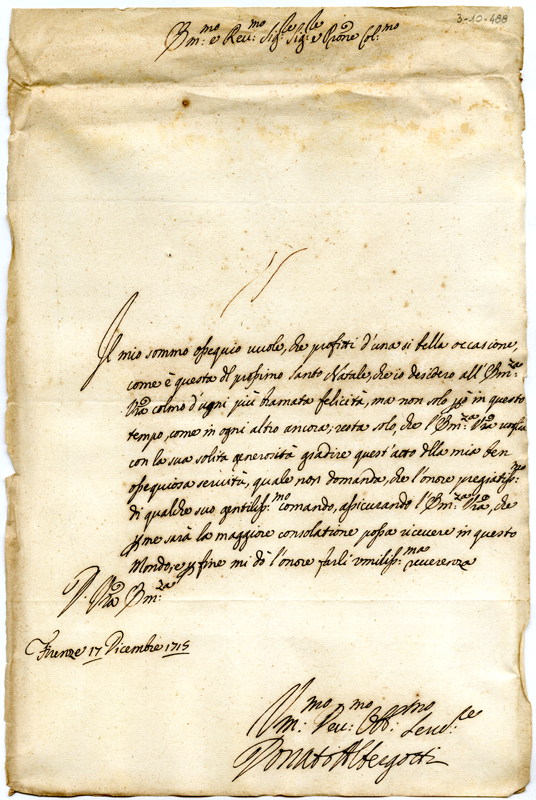 3-10-488
Em:mo e Reu:mo Sig:re Sig:re e Prone Col:mo
Il mio sommo ossequio uuole, che profitti d'una si bella occasione,
come è questa del prossimo santo Natale, che io desidero all'Em:za
Vra colmo d'ogni più bramata felicità, ma non solo p in questo
tempo, come in ogni altro ancora; resta solo che l'Em:za Vra voglia
con la sua solita generosità gradire quest'atto della mia ben
ossequiosa seruitù, quale non domanda, che l'onore pregiatiss:mo
di qualche suo gentiliss:mo comando, assicurando l'Em:za Vra, che
p me sarà la maggiore consolatione possa riceuere in questo
Mondo, e p fine mi dò l'onore farli vmiliss:ma reuerenza
D. Vra Em:za
Firenze 17 Dicembre 1715
Vm:mo Deu:mo Obb:mo Seru:re
Donato Albergotti